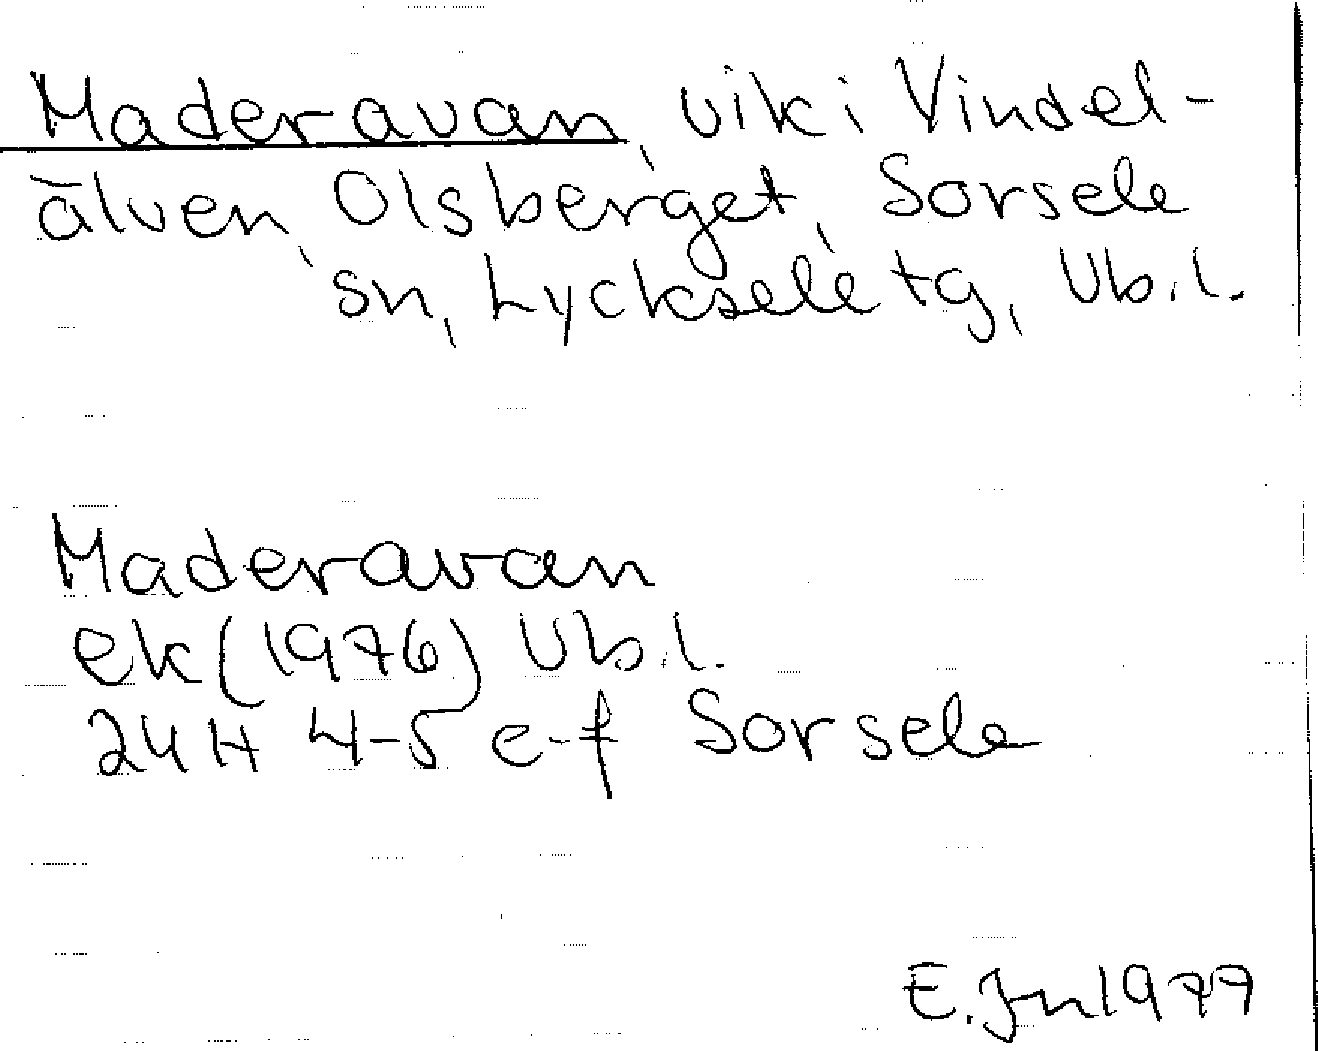 Maderavan, vik i Vindel-
älven, Olsberget, Sorsele
sn, Lycksele tg, Vb.l.
Maderavan
ek (1976) Vb.l.
24H 4-5 e-f Sorsele
E. Jn 1977